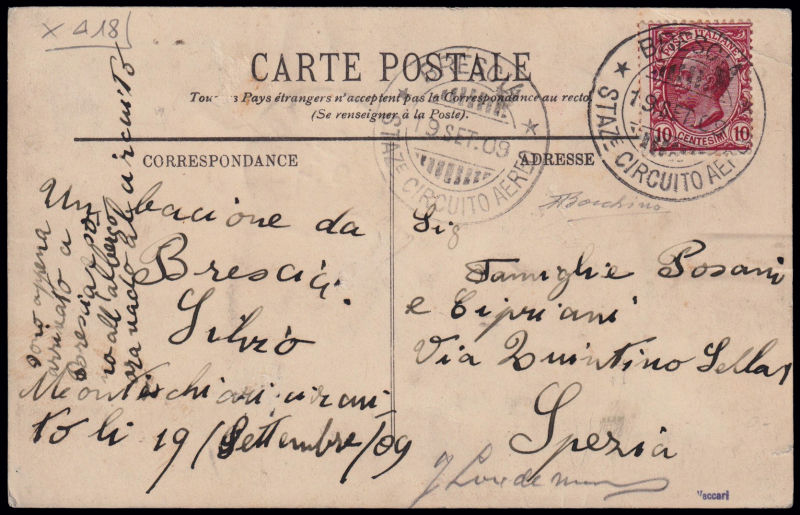 X 418
CARTE POSTALE
Tous les Pays étrangers n'acceptent pas la Correspondance au recto
(Se renseigner à la Poste).
CORRESPONDANCE
ADRESSE
BRESCIA
19 SET. 09
STAZE CIRCUITO AEREO
POSTE ITALIANE
10 CENTESIMI 10
BRESCIA
19 SET. 09
STAZE CIRCUITO AEREO
ABocchino
Un bacione da
Brescia.
Silvio
Montechiari
to li 19/Settembre/09
Sono appena
arrivato a
Brescia
no all'albergo
ora vado al circuito
Sig
Famiglie Posani
e Cipriani
Via Quintino Sella 1
Spezia
Vaccari